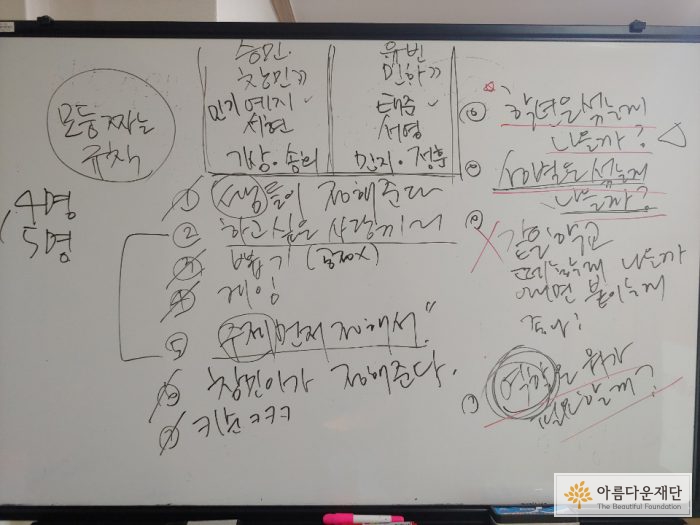 모둠 짜는
규칙
4명
5명
승민
창민
민기 예지
서현
가상·송희
유빈
민하
태준
서영
민지·정훈
① 샘들이 정해준다
② 하고싶은 사람끼리
③ 뽑기
④ 게임
⑤ 주제 먼저 정해서
⑥ 창민이가 정해준다.
⑦ 키순 ㅋㅋㅋ
학년은 섞는게
나을까?
성별은 섞는게
나을까?
같은 학교
떼놓는게 나을까
아니면 붙이는게
역할은 뭐가
필요할까?
아름다운재단
The Beautiful Foundation